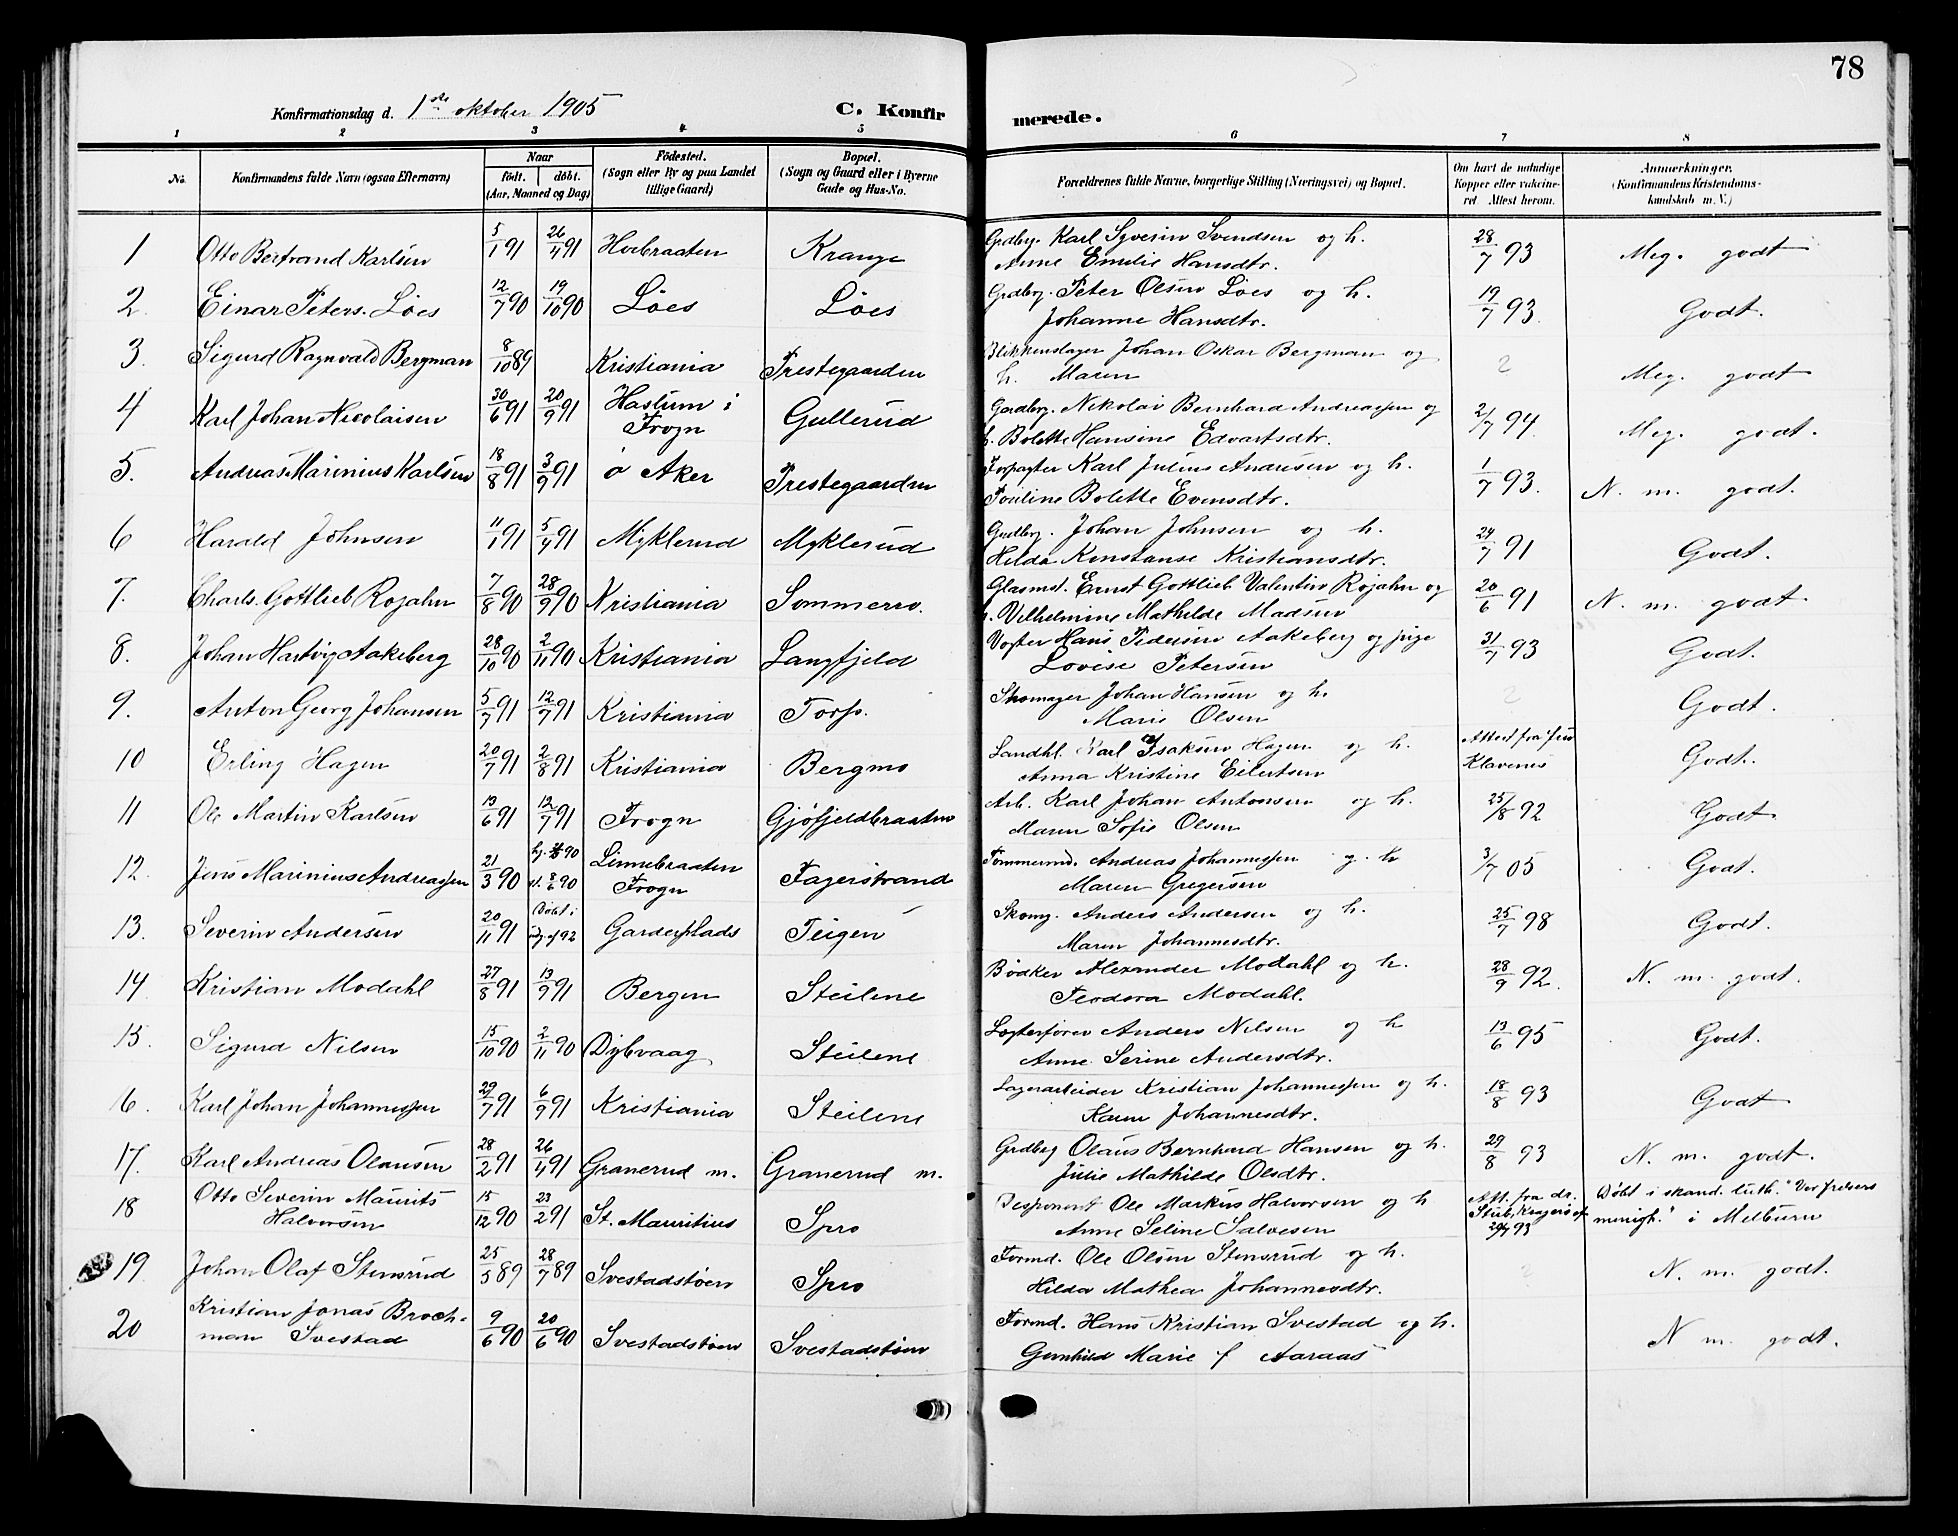 78
Konfirmationsdag d. 1ste oktober 1905 C. Konfirmerede.
1 2 3 4 5 6 7 8
No. Konfirmandens fulde Navn (ogsaa Efternavn) Naar født. døbt. (Aar, Maaned og Dag) Födested. (Sogn eller By og paa Landet tillige Gaard) Bopæl. (Sogn og Gaard eller i Byerne Gade og Hus-No. Forældrenes fulde Navne, borgerlige Stilling (Næringsvei) og Bopæl. Om havt de naturlige Kopper eller vakcineret. Attest herom. Anmærkninger. (Konfirmandens Kristendomskundskab m. V.)
1 Otto Bertrand Karlsen 5/1 91 26/4 91 Hvebraaten Krange Grdbr. Karl Syverin Svendsen og h. 28/7 93 Meg. godt
Anne Emilie Hansdtr.
2. Einar Peters. Löes 12/7 90 19/10 90 Löes Löes Grdbr. Peter Olsen Löes og h. 19/7 93. Godt.
Johanne Hansdtr.
3. Sigurd Ragnvald Bergman 8/10 89 Kristiania Prestegaarden Blikkenslager Johan Oskar Bergman og ? Meg. godt
h. Maren
4 Karl Johan Nicolaisen 30/6 91 20/9 91 Haslum i Gullerud Gardbr. Nikolai Bernhard Andreassen og 2/7 94. Meg. godt.
Frogn h. Bolette Hansine Edvartsdtr.
5. Andreas Marinius Karlsen 18/8 91 3/9 91 Ø Aker Prestegaarden Forpagter Karl Julius Andresen og h. 1/7 93. N. m. godt.
Pouline Bolette Evensdtr.
6 Harald Johnsen 11/1 91 5/4 91 Myklerud Myklerud Grdbr. Johan Johnsen og h. 24/7 91 Godt.
Hilda Konstanse Kristiansdtr.
7. Charls. Gottlieb Rojahn 7/8 90 28/9 90 Kristiania Sommerro. Glasmd. Ernst Gottlieb Valentin Rojahn og 20/6 91 N. m. godt.
h. Vilhelmine Mathilde Madsen
8. Johan Hartvig Aakeberg 28/10 90 2/11 90 Kristiania Langfjeld Vogter Hans Pedersen Aakeberg og pige 31/7 93 Godt.
Lovise Petersen
9. Anton Georg Johansen 5/7 91 12/7 91 Kristiania Torp. Skomager Johan Hansen og h. ? Godt.
Marie Olsen
10 Erling Hagen 20/7 91 2/8 91 Kristiania Bergmo Landhl. Karl Isaksen Hagen og h. Attest fra frue Godt.
Anna Kristine Eilertsen Klavenes
11 Ole Martin Karlsen 13/6 91 12/7 91 Frogn Gjöfjeldbraaten Arb. Karl Johan Antonsen og h. 25/8 92 Godt
Maren Sofie Olsen
12. Jens Marinius Andreassen 21/3 90 hj. 90 Linnebraaten Fagerstrand Tömmermd. Andreas Johannessen og h 3/7 05 Godt.
8/6 90 Frogn Maren Gregersen
13. Severin Andersen 20/11 91 Döbt i 92 Garderplads Teigen Skomg. Anders Andersen og h. 25/7 98 Godt.
Maren Johannesdtr.
14 Kristian Modahl 27/8 91 13/9 91 Bergen Steilene Bödker Alexander Modahl og h. 28/9 92. N. m. godt.
Teodora Modahl.
15. Sigurd Nilsen 15/10 90 2/11 90 Dybvaag Steilene Lagterförer Anders Nilsen og h 13/6 95 Godt.
Anne Serine Andersdtr.
16. Karl Johan Johannessen 29/7 91 6/9 91 Kristiania Steilene Lagerarbeider Kristian Johannessen og h. 18/8 93 Godt
Karen Johannesdtr.
17. Karl Andreas Olausen 28/2 91 26/4 91 Granerud m. Granerud m. Grdbrg Olaus Bernhard Hansen og h. 29/8 93 N. m. godt.
Julie Mathilde Olsdtr.
18 Otto Severin Maurits 15/12 90 23/2 91 St. Mauritius Spro Disponent Ole Markus Halvorsen og h Att. fra dr. Döbt i skand. luth. "Vor frelsers
Halvorsen Anne Seline Salvesen Stub, Kragerö af menigh." i Melburn
93
19 Johan Olaf Stensrud 25/5 89 28/7 89 Svestadstöen Spro Formd. Ole Olsen Stensrud og h. ? N. m. godt.
Hilda Mathea Johannesdtr.
20 Kristian Jonas Broch- 9/6 90 20/6 90 Svestadstöen Svestadstöen Formd. Hans Kristian Svestad og h. N m. godt.
man Svestad Gunhild Marie f Aaraas